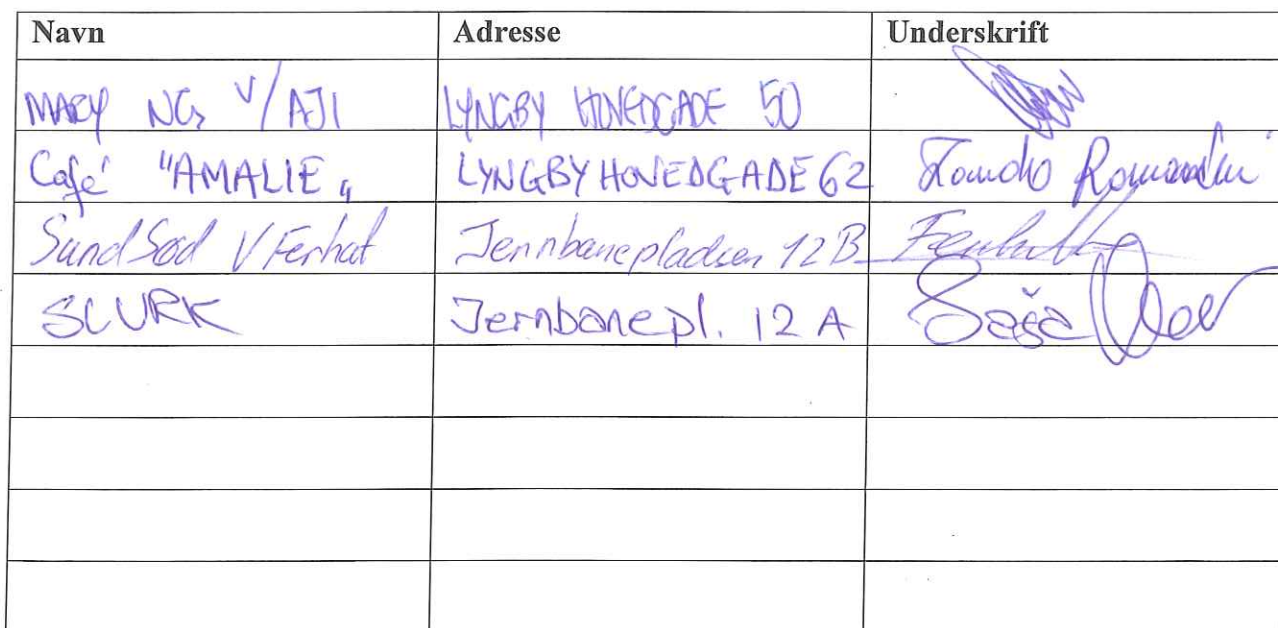 Navn Adresse Underskrift
MARY NG V/AJI LYNGBY HOVEDGADE 50
Café "AMALIE„ LYNGBY HOVEDGADE 62
Sund Sød V Ferhat Jernbanepladsen 12B
SLURK Jernbanepl. 12 A Saša